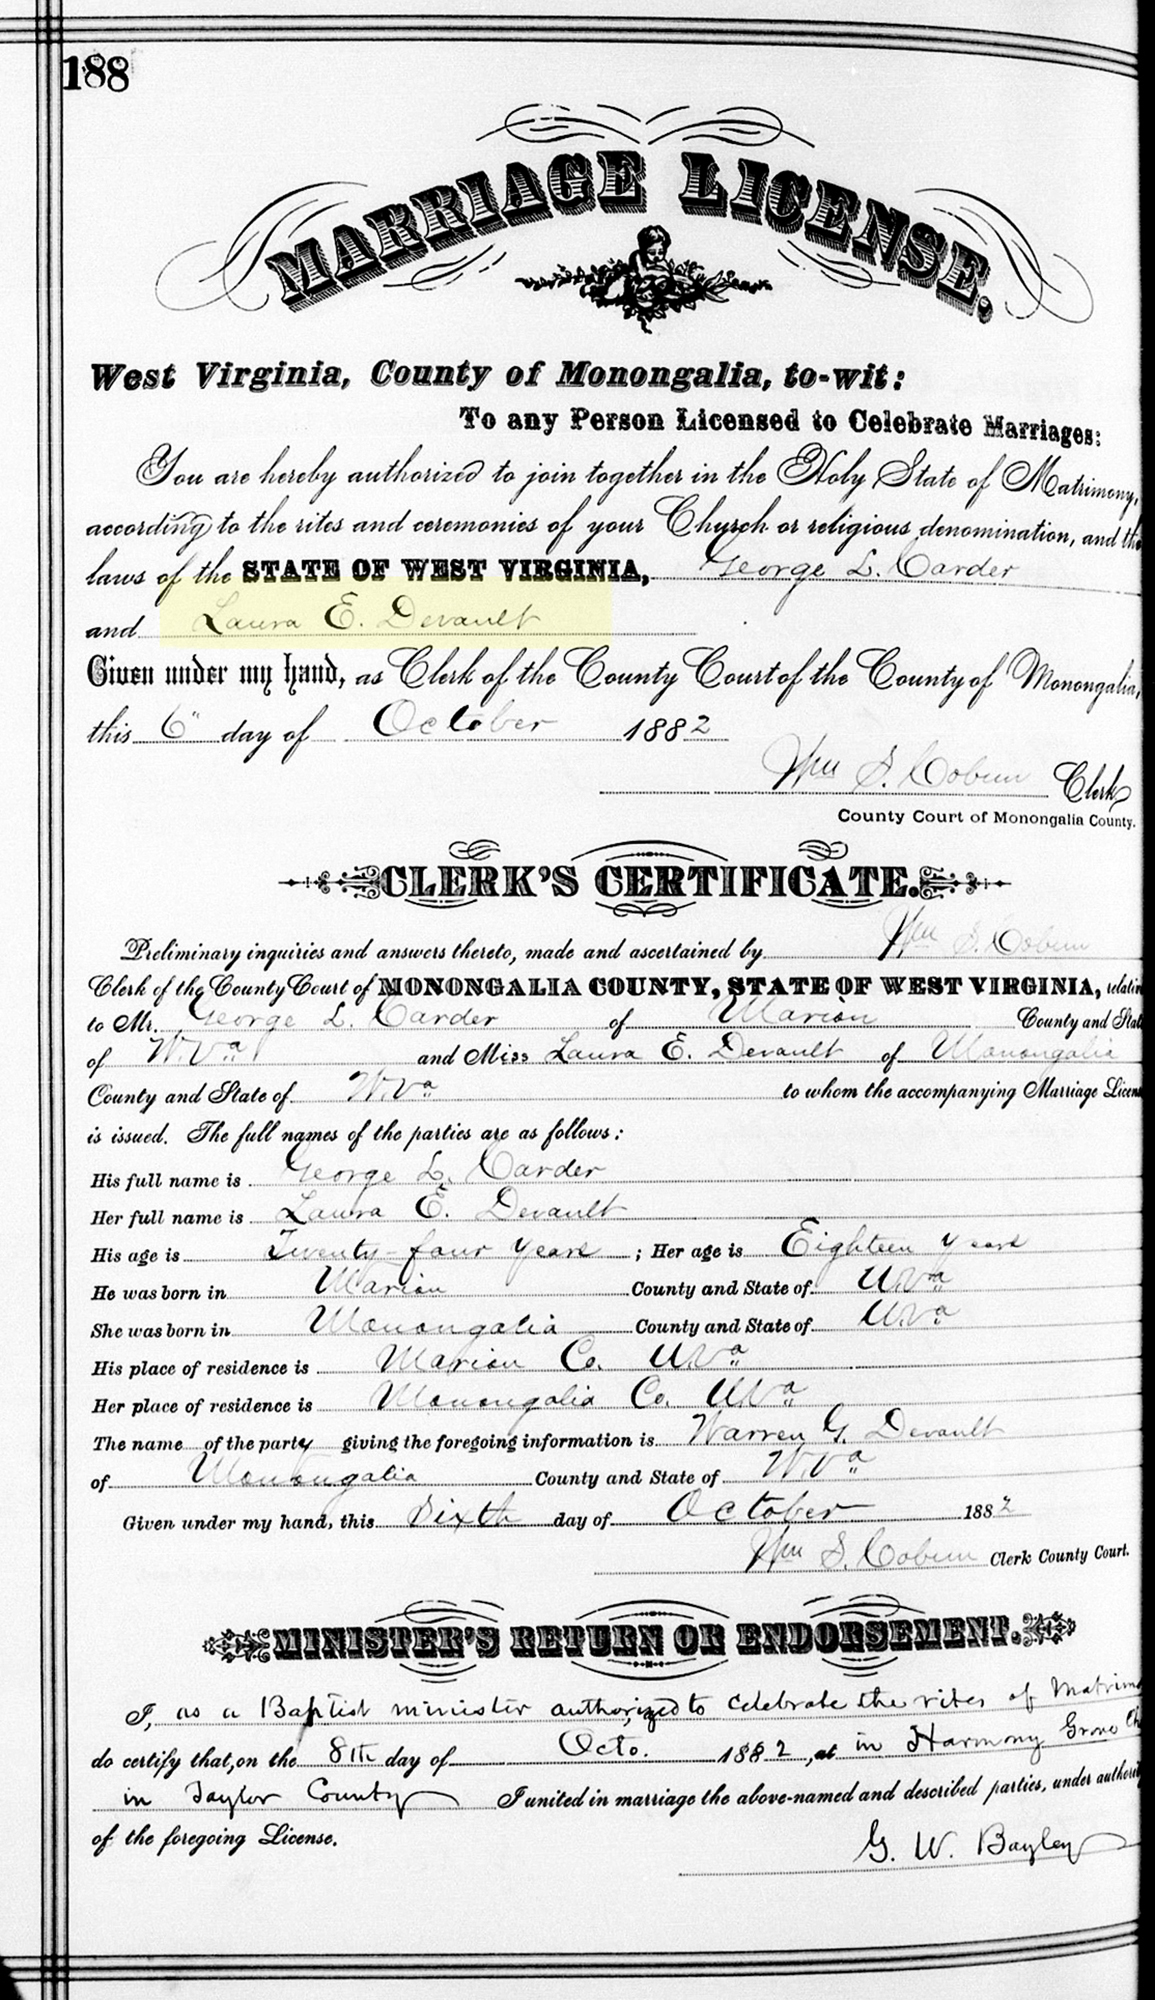 188
MARRIAGE LICENSE.
West Virginia, County of Monongalia, to-wit:
To any Person Licensed to Celebrate Marriages:
You are hereby authorized to join together in the Holy State of Matrimony,
according to the rites and ceremonies of your Church or religious denomination, and the
laws of the STATE OF WEST VIRGINIA, George L. Carder
and Laura E. Devault
Given under my hand, as Clerk of the County Court of the County of Monongalia,
this 6" day of October 1882
Wm S. Cobun Clerk
County Court of Monongalia County.
CLERK'S CERTIFICATE.
Preliminary inquiries and answers thereto, made and ascertained by Wm S. Cobun
Clerk of the County Court of MONONGALIA COUNTY, STATE OF WEST VIRGINIA, relati
to Mr. George L. Carder of Marion County and Stat
of W.Va and Miss Laura E. Devault of Monongalia
County and State of W.Va to whom the accompanying Marriage Licens
is issued. The full names of the parties are as follows:
His full name is George L. Carder
Her full name is Laura E. Devault
His age is Twenty-four years ; Her age is Eighteen years
He was born in Marion County and State of W.Va
She was born in Monongalia County and State of W.Va
His place of residence is Marion Co. W.Va
Her place of residence is Monongalia Co. W.Va
The name of the party giving the foregoing information is Warren G. Devault
of Monongalia County and State of W.Va
Given under my hand, this Sixth day of October 1882
Wm S. Cobun Clerk County Court.
MINISTER'S RETURN OR ENDORSEMENT.
I, as a Baptist minister authorized to celebrate the rites of Matrimo
do certify that, on the 8th day of Octo. 1882, at in Harmony Grove Ch
in Taylor County I united in marriage the above-named and described parties, under authority
of the foregoing License.
G. W. Bayley